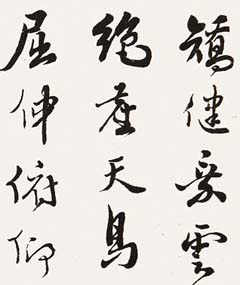 矯健乘雲
絕塵天鳥
屈伸俯仰